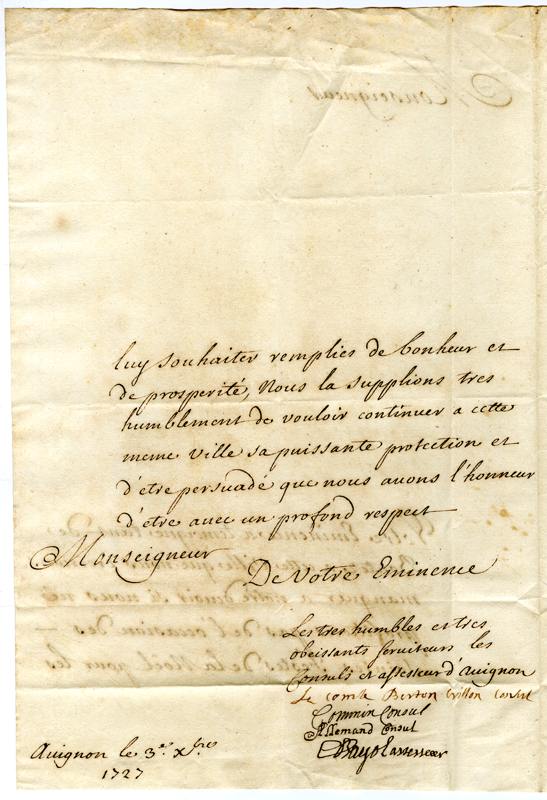 luy souhaiter remplies de bonheur et
de prosperité, Nous la supplions tres
humblement de vouloir continuer a cette
meme ville sa puissante protection et
d'etre persuadé que nous auons l'honneur
d'être auec un profond respect
Monseigneur
De Votre Eminence
Les tres humbles et tres
obeissants serviteurs les
Consuls et assesseur d'auignon
Le comte Berton Crillon Consul
Commin Consul
Allemand Consul
Bayol assesseur
Auignon le 3.e Xbre
1727